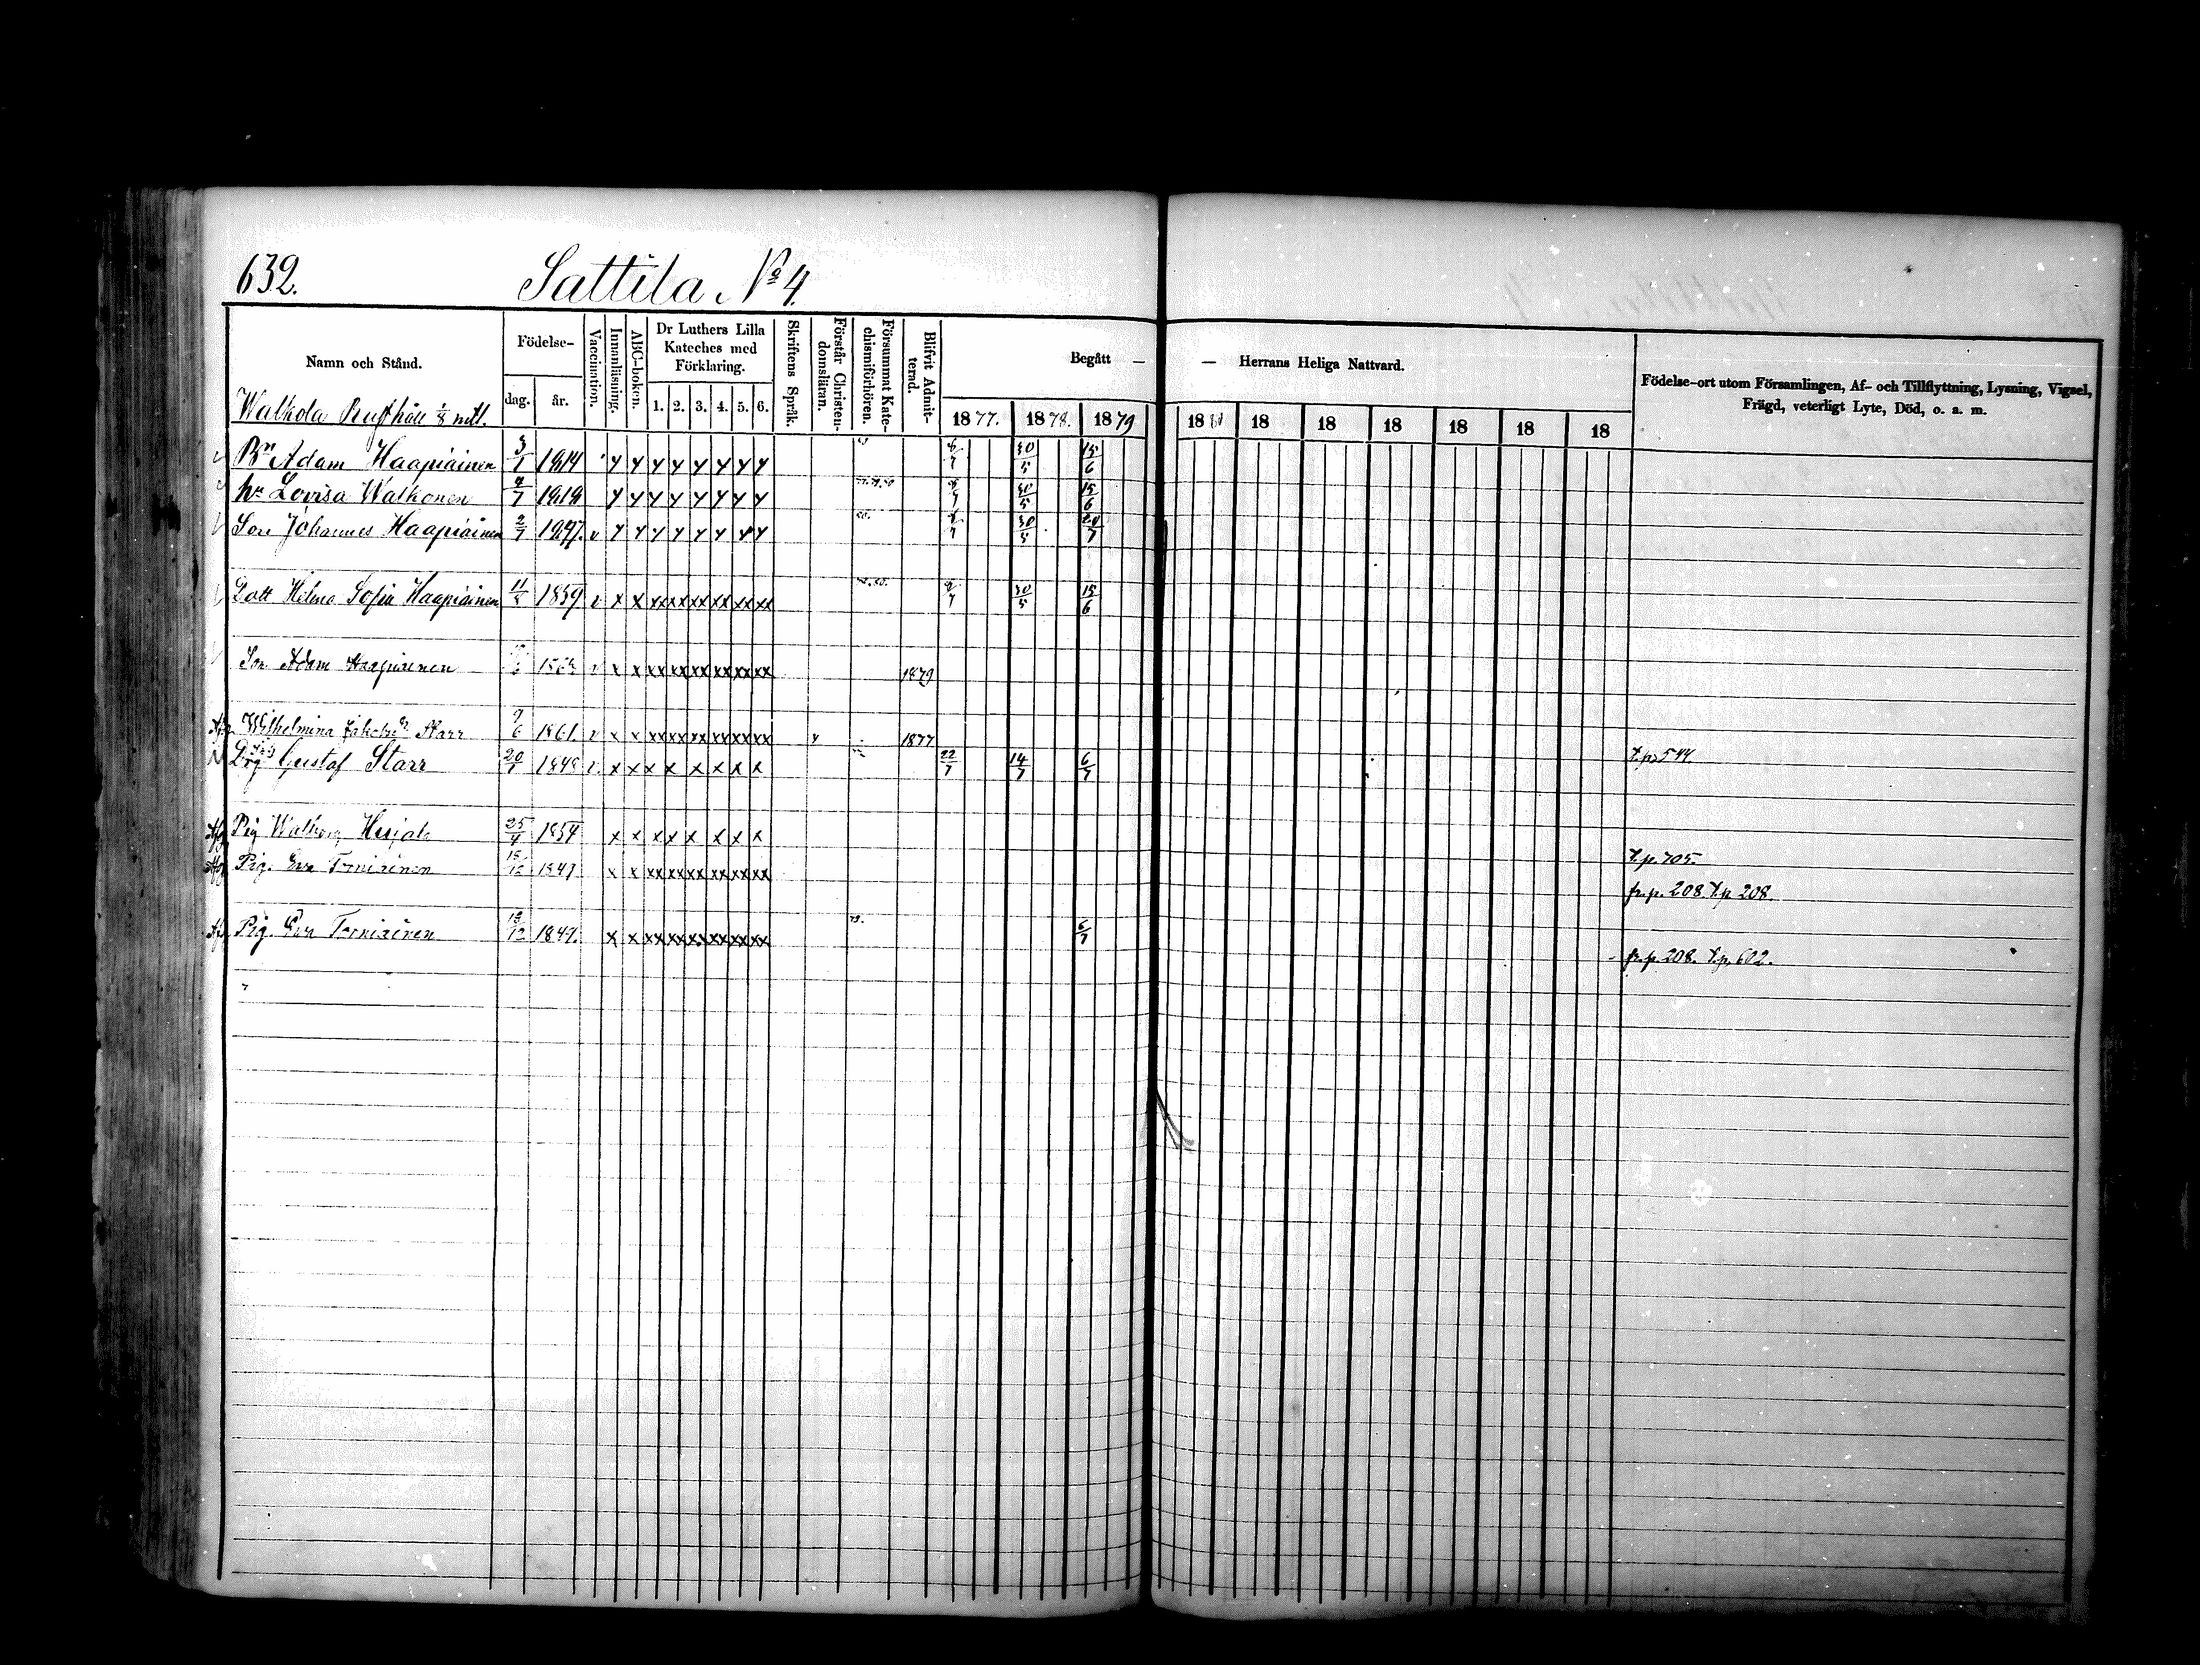 632. Sattila No 4.
Namn och Stånd. Födelse- dag. år. Vaccination. Innanläsning. ABC-boken. Dr Luthers Lilla Kateches med Förklaring. 1. 2. 3. 4. 5. 6. Skriftens Språk. Förstår Christendomsläran. Försummat Katechismiförhören. Blifvit Admitterad. Begått — — Herrans Heliga Nattvard. Födelse-ort utom Församlingen, Af- och Tillflyttning, Lysning, Vigsel, Frägd, veterligt Lyte, Död, o. a. m.
1877. 1878. 1879 18 18 18 18 18 18 18
Walkola Rusthåll
Bn Adam Haapiainen 3/1 1814 y y y y y y y y 8/7 30/5 15/6
hu Lovisa Walkonen 4/7 1818 y y y y y y y y 8/7 30/5 15/6
Son Johannes Haapiainen 2/7 1847. v y y y y y y y y 8/7 30/5 20/7
Dott Helena Sofia Haapiainen 11/5 1859 v x x xx xx xx xx xx xx 8/7 30/5 15/6
Son Adam Haapiainen v x x xx xx xx xx xx xx 1879
Wilhelmina Starr 9/6 1861. v x x xx xx xx xx xx xx x 1877
Drg Gustaf Starr 20/1 1848 v. x x x x x x x x 22/7 14/7 6/7 t.p. 544.
Pig Walborg 25/4 1854 x x x x x x x x t.p. 705.
Pig. Eva Torniainen 15/12 1849 x x xx xx xx xx xx xx fr.p. 208. t.p. 208.
Pig. Eva Torniainen 15/12 1849. x x xx xx xx xx xx xx 79. 6/7 fr.p. 208. t.p. 602.